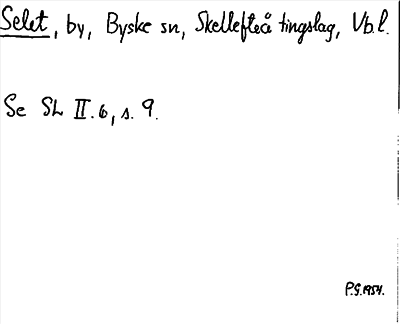 Selet, by, Byske sn, Skellefteå tingslag, Vb.l.
Se SL II.6, s. 9.
P.G.1954.